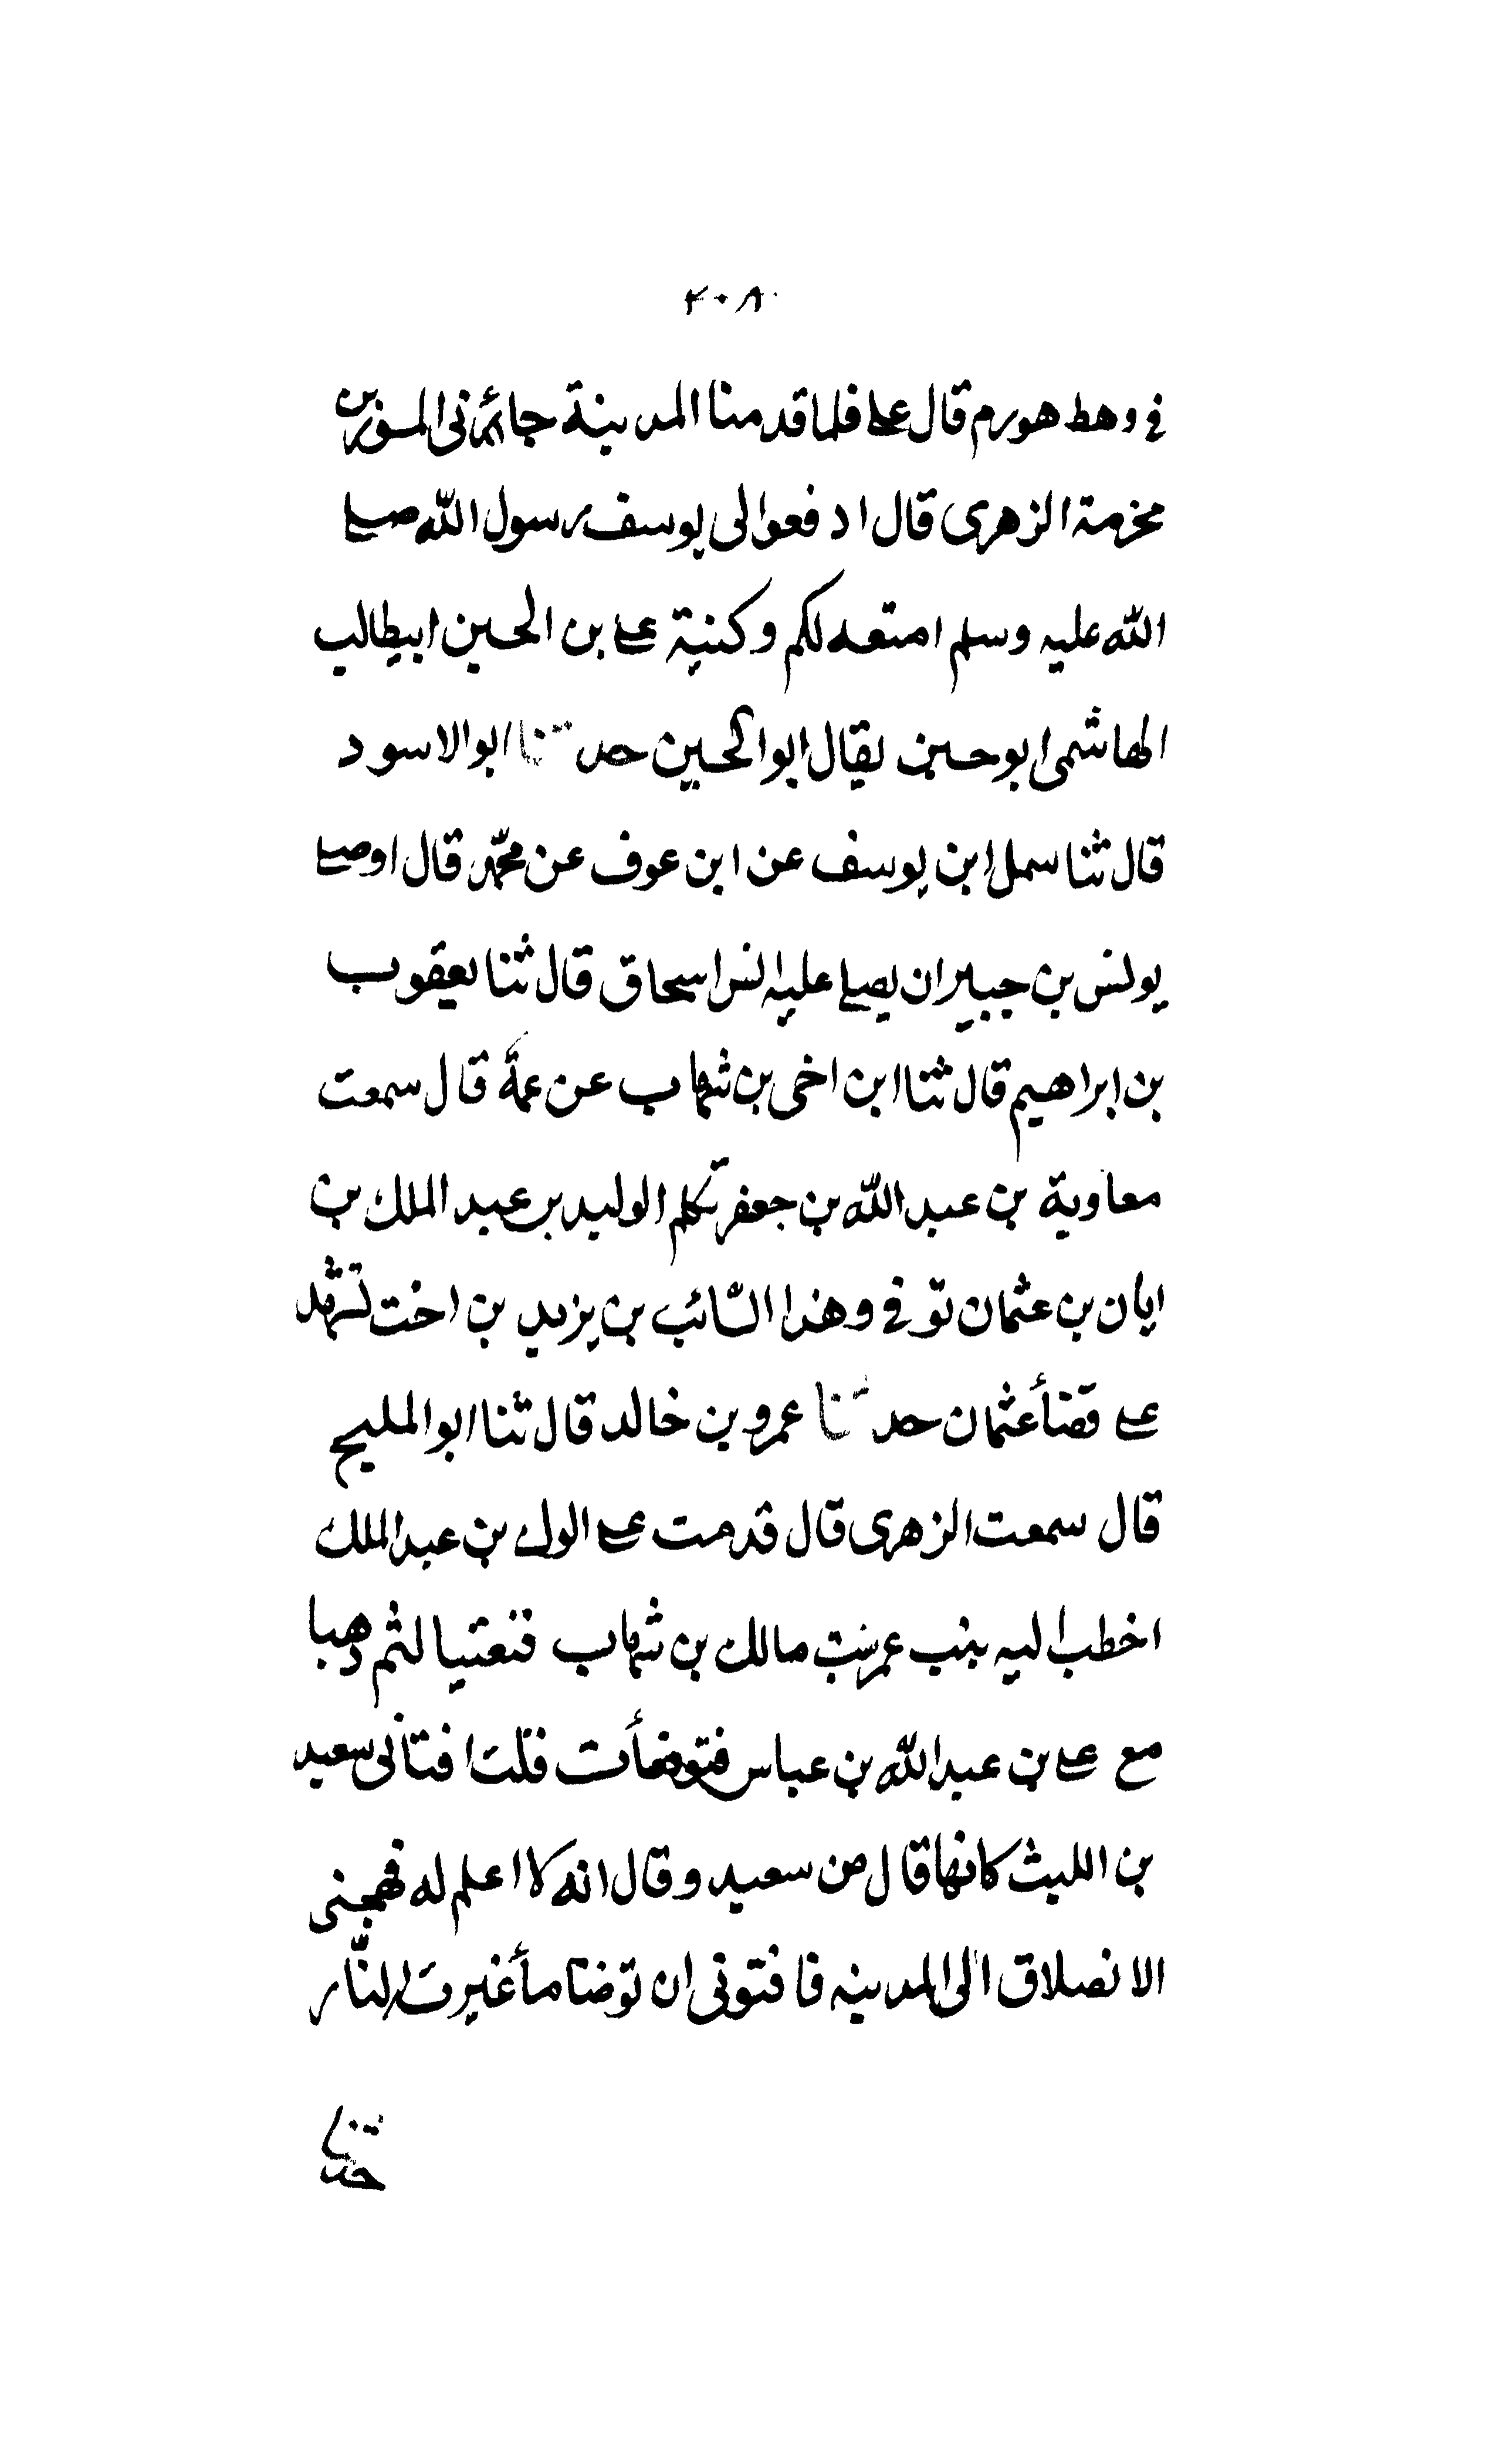 ٢٠٨
في وهط هورم قال على فلما قدمنا المدينة جائزنى المسور بن
مخزمة الزهرى قال ادفعوا لى يوسف رسول الله صلى
الله عليه وسلم امتعه لكم وكنية على بن الحسين ابيطالب
الهاشمى ابو حسين يقال ابو الحسين حدثنا ابو الاسود
قال ثنا سمل ابن يوسف عن ابن عوف عن محمّد قال اوصى
يونس بن جبير ان يصلى عليه انس اسحاق قال ثنا يعقوب
بن ابراهيم قال ثنا ابن اخى بن شهاب عن عمة قال سمعت
معاوية بن عبد الله بن جعفر تكلم الوليد بن عبد الملك بن
ابان بن عثمان توفي وهذا السّائب بن يزيد بن اخت تشهد
على قضأ عثمان حدثنا عمرو بن خالد قال ثنا ابو المليح
قال سمعت الزهرى قال قدمت على الول بن عبد الملك
اخطب اليه بنب عمر بنت مالك بن شهاب فتعتيا لثم ذهبا
مع على بن عبد الله بن عباس فتوضأت قلت افتانى سعيد
بن الليث كانها قال من سعيد وقال انه لا اعلم له فهمجنى
الانصلاق الى المدينه فافتونى ان توضنا مأ غيرت النّار
حدثنا